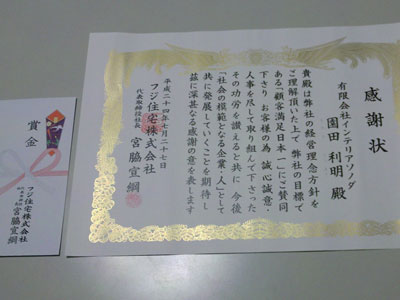 感謝状
有限会社インテリアソノダ
園田 利明 殿
貴殿は弊社の経営理念方針を
ご理解頂いた上で 弊社の目標で
ある「顧客満足日本一」にご賛同
下さり お客様の為 誠心誠意・
人事を尽して取り組んで下さった
その功労を讃えると共に 今後
「社会の模範となる企業・人」として
共に発展していくことを期待し
茲に深甚なる感謝の意を表します
平成二十四年七月二十七日
フジ住宅株式会社
代表取締役社長 宮脇宣綱
賞金
フジ住宅株式会社
宮脇宣綱